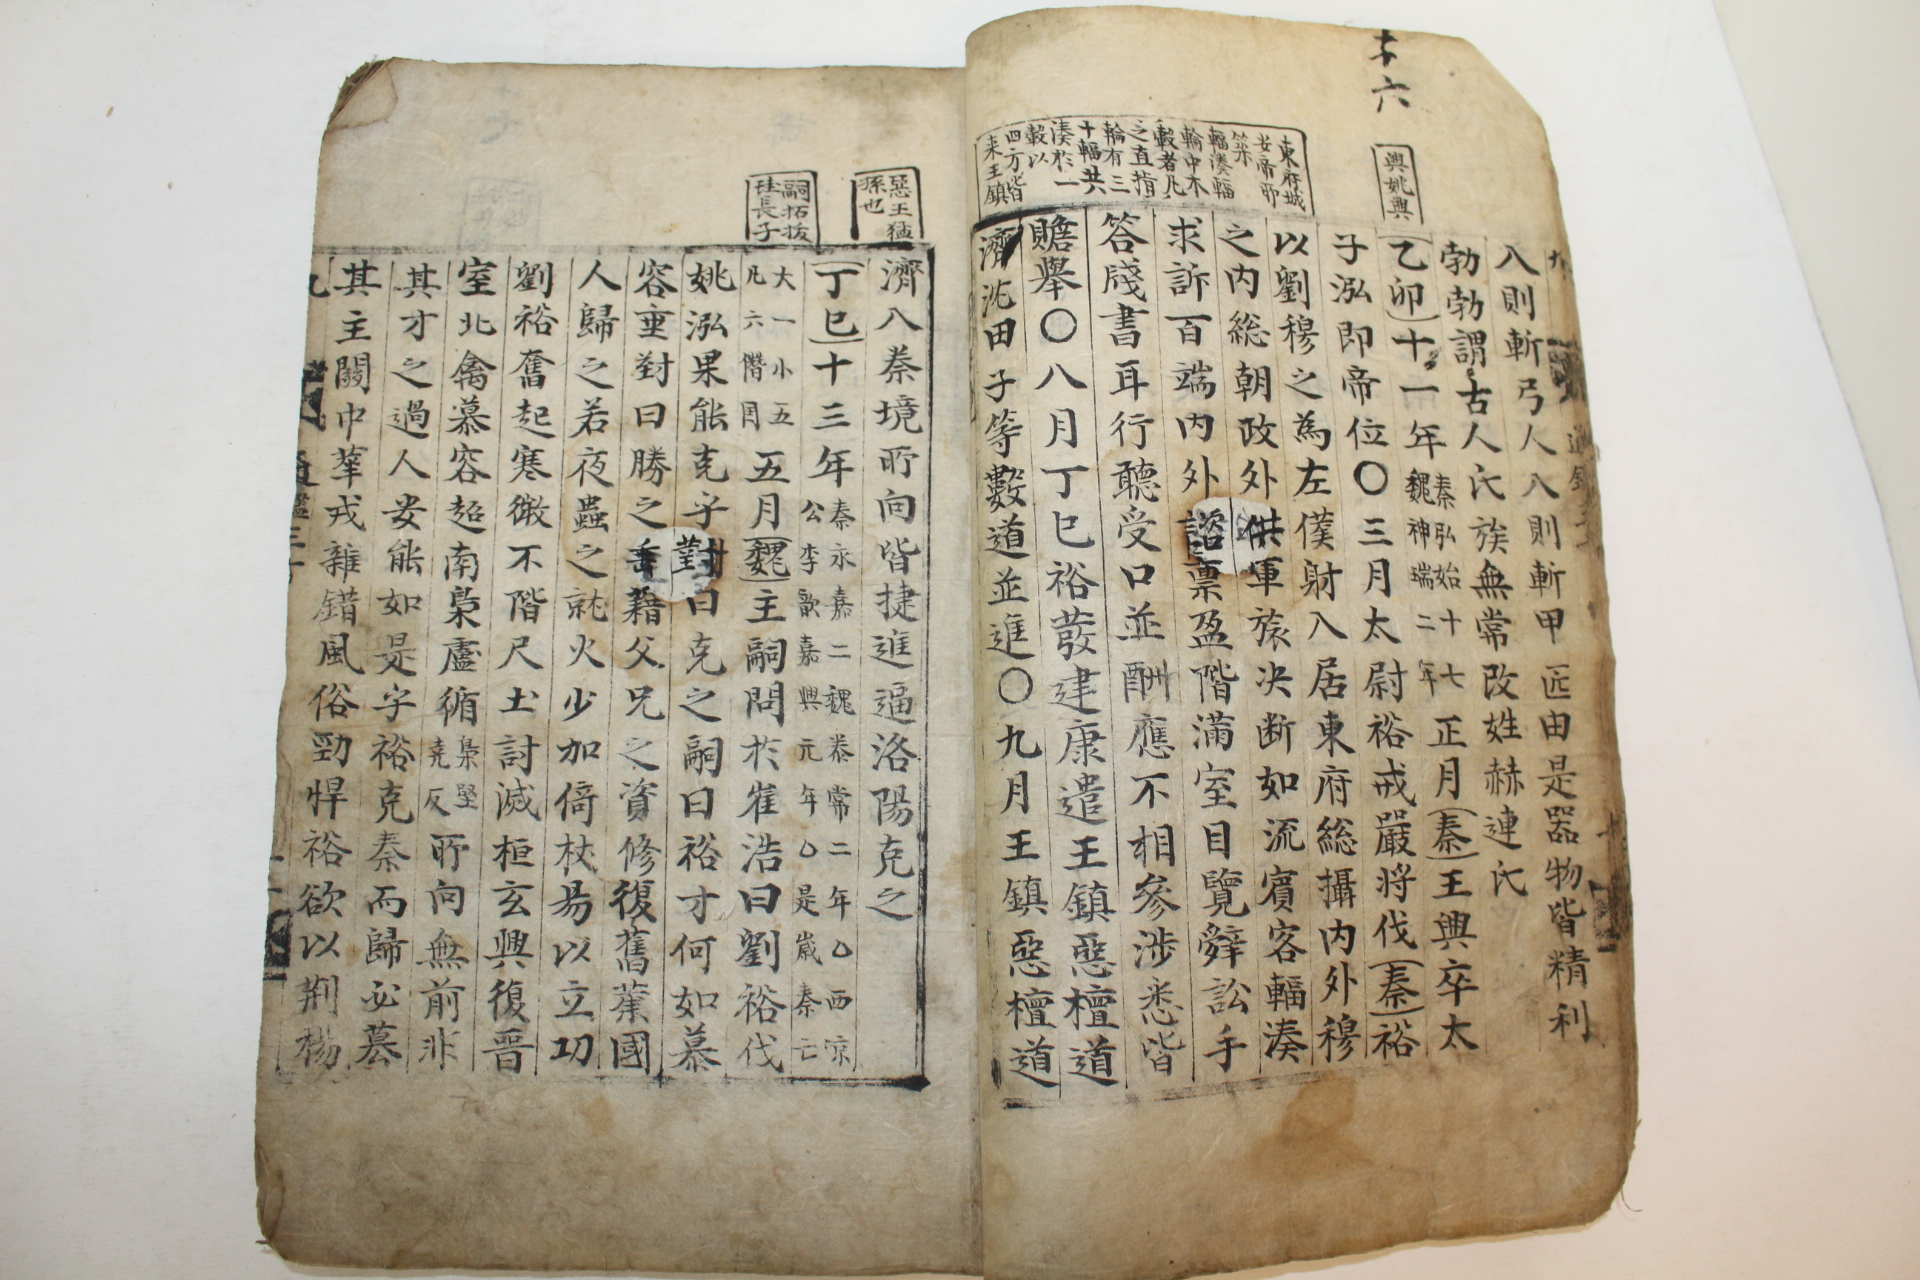 十六
興姚興
東府城
安帝所
築
輻湊輻
輪中木
轂者凡
之直指
輪有三
十輻共
湊於一
轂以
四方皆
来王鎮
八則斬弓人八則斬甲匠由是器物皆精利
勃勃謂古人氏族無常改姓赫連氏
乙卯十一年秦弘始十七魏神瑞二年正月秦王興卒太
子泓即帝位〇三月太尉裕戒嚴将伐秦裕
以劉穆之為左僕射入居東府総攝内外穆
之内総朝政外供軍旅决断如流賓客輻湊
求訴百端内外諮禀盈階滿室目覽辭訟手
答牋書耳行聽受口並酬應不相參涉悉皆
贍舉〇八月丁巳裕發建康遣王鎮惡檀道
濟沈田子等數道並進〇九月王鎮惡檀道
惡王猛
孫也
嗣拓拔
珪長子
濟入秦境所向皆捷進逼洛陽克之
丁巳十三年秦永嘉二魏泰常二年〇西凉
公李歆嘉興元年〇是歲秦亡
大一小五
凡六僭国五月魏主嗣問於崔浩曰劉裕伐
姚泓果能克乎對曰克之嗣曰裕才何如慕
容垂對曰勝之垂藉父兄之資修復舊業國
人歸之若夜蟲之就火少加倚杖易以立功
劉裕奮起寒微不階尺土討滅桓玄興復晉
室北禽慕容超南梟盧循梟堅堯反所向無前非
其才之過人安能如是乎裕克秦而歸必簒
其主關中華戎雜錯風俗勁悍裕欲以荆楊